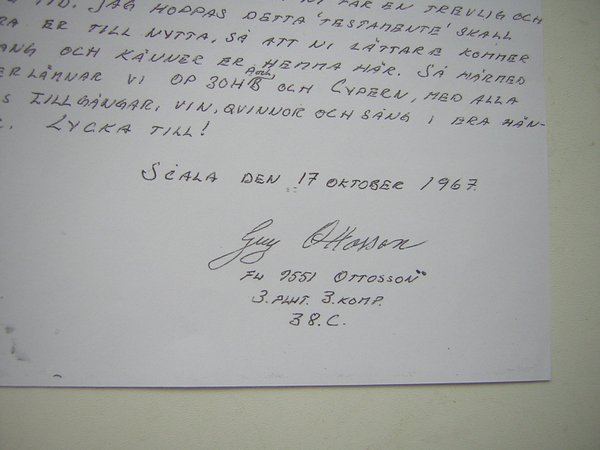 TID. JAG HOPPAS DETTA "TESTAMENTE" SKALL
RA ER TILL NYTTA, SÅ ATT NI LÄTTARE KOMMER
ANG OCH KÄNNER ER HEMMA HÄR. SÅ HÄRMED
ERLÄMNAR VI OP 30H B OCH CYPERN, MED ALLA
S TILLGÅNGAR, VIN, QVINNOR OCH SÅNG I ERA HÄN-
LYCKA TILL!
SCALA DEN 17 OKTOBER 1967.
Guy Ottosson
FN 9551 OTTOSSON
3. PLUT. 3. KOMP.
38.C.